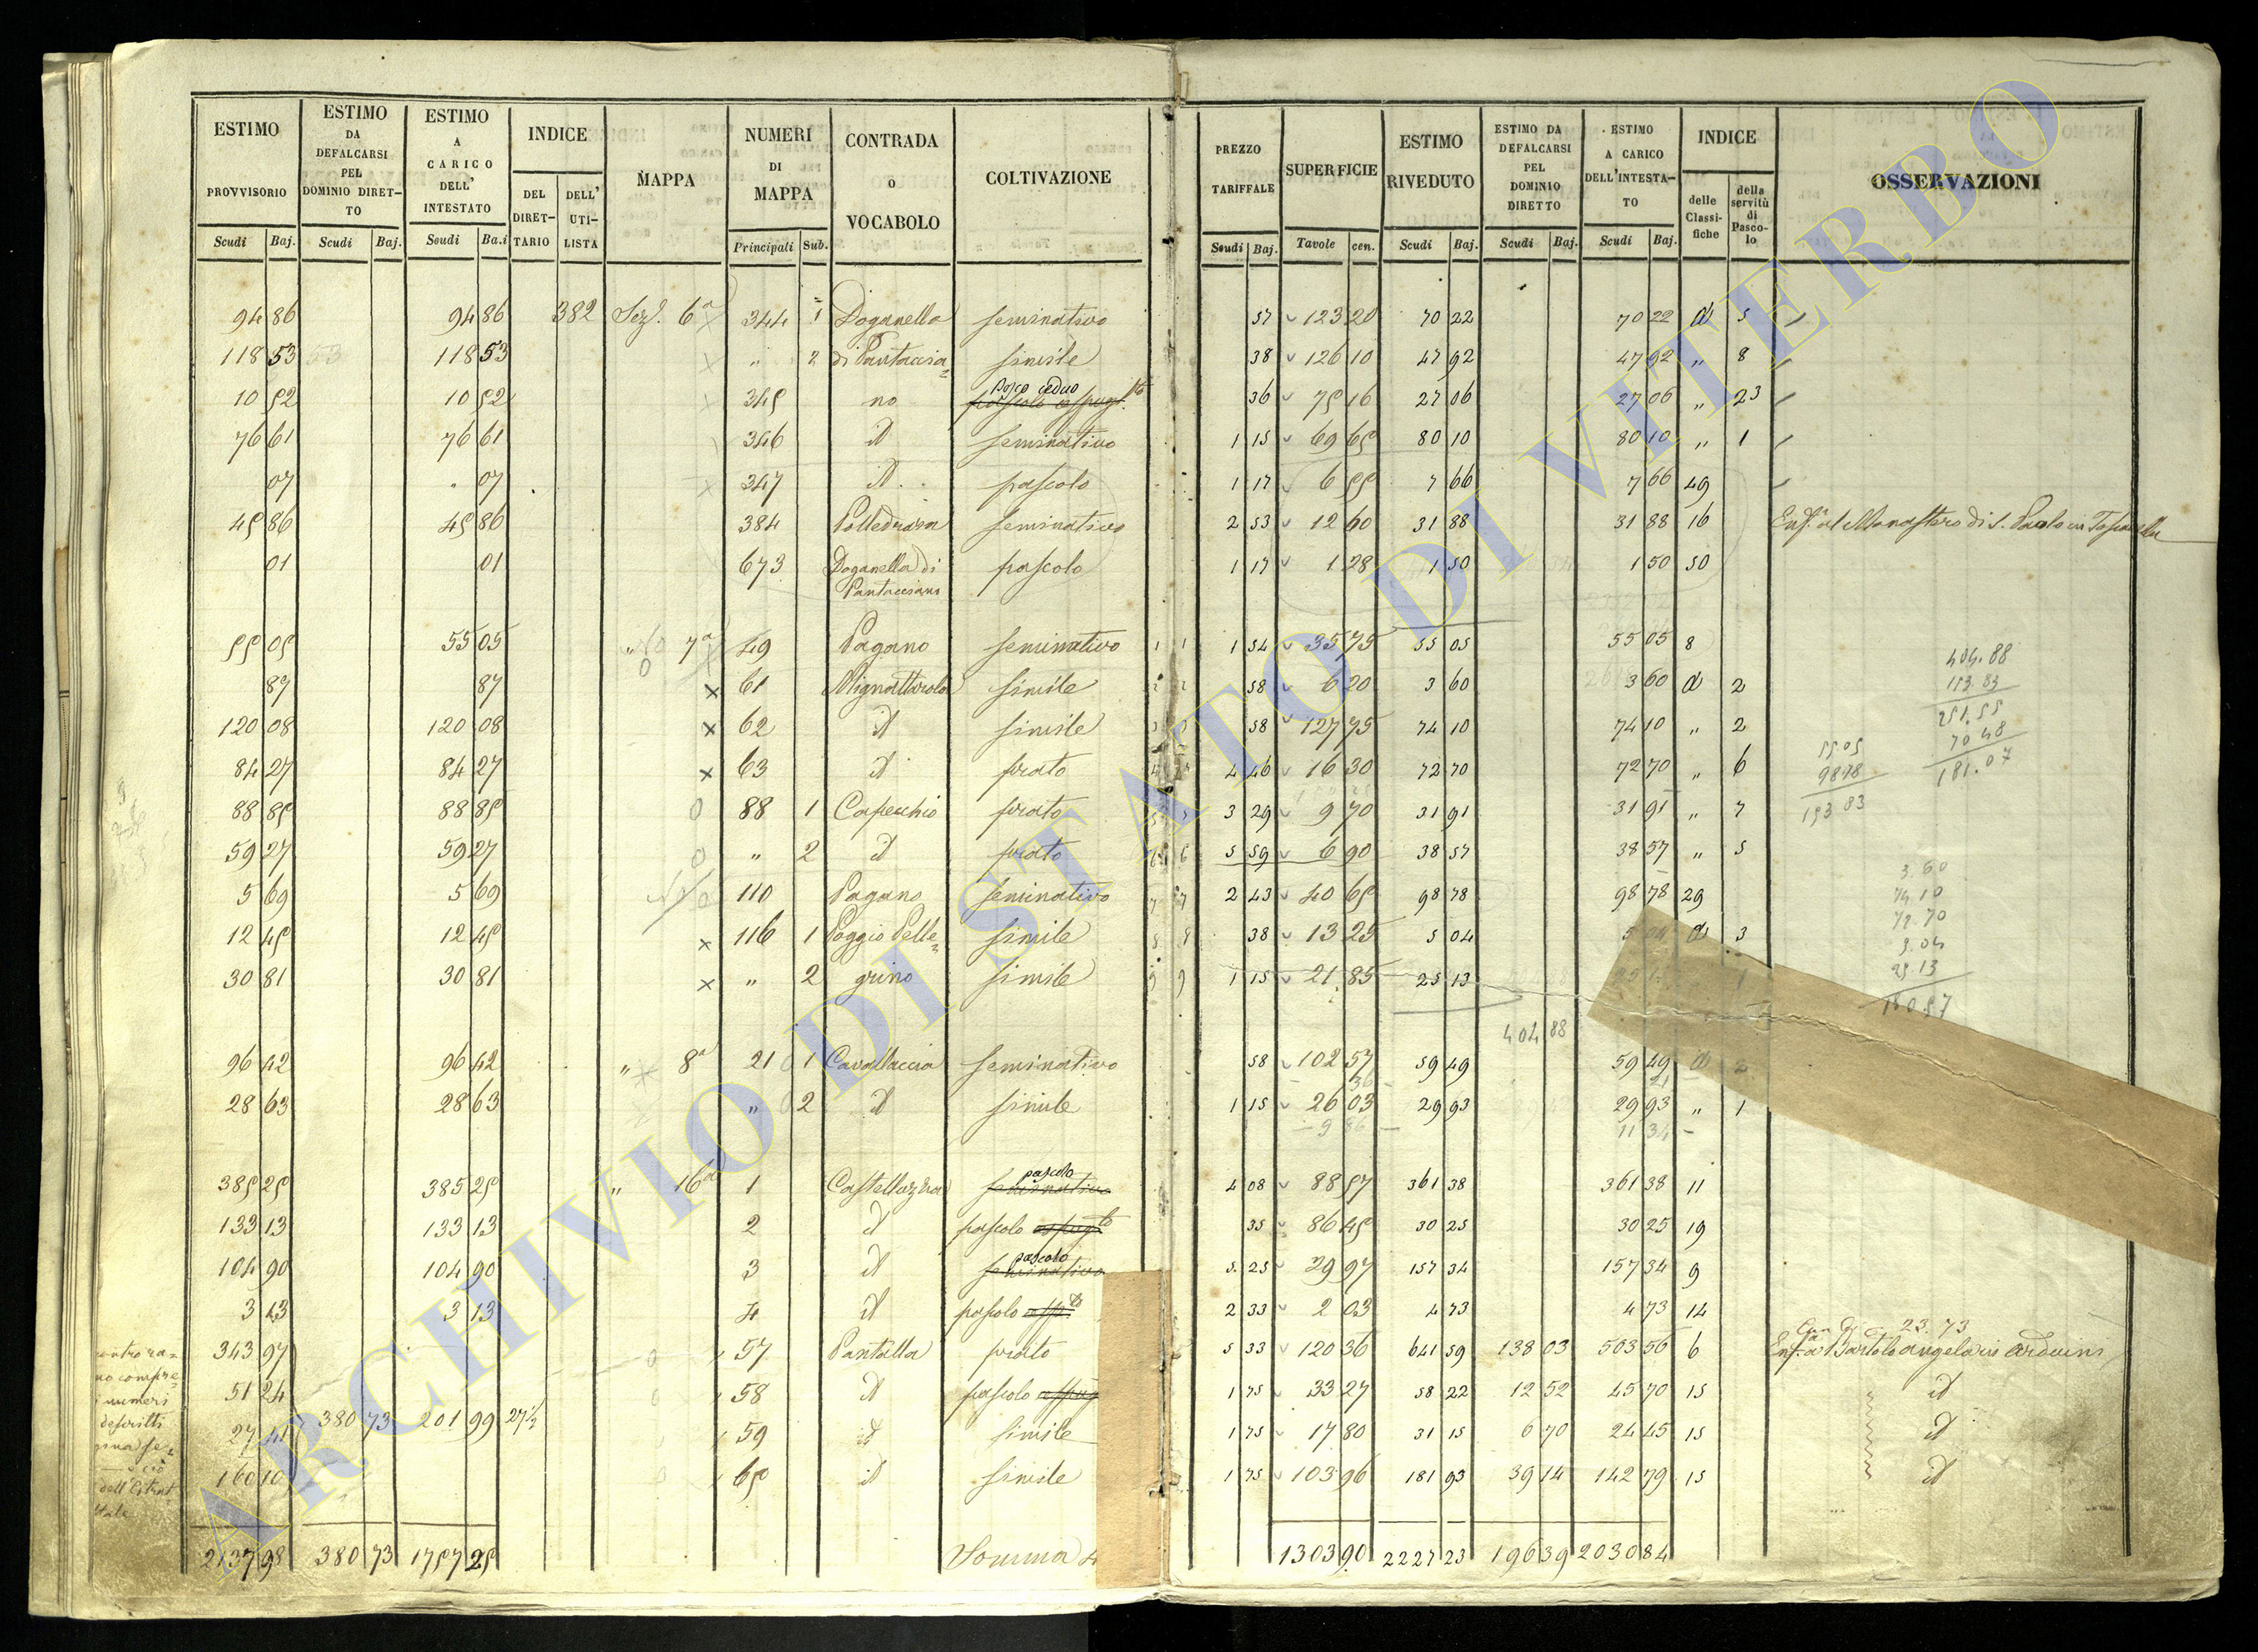 ESTIMO PROVVISORIO Scudi Baj.
ESTIMO DA DEFALCARSI PEL DOMINIO DIRETTO Scudi Baj.
ESTIMO A CARICO DELL' INTESTATO Scudi Ba.i
INDICE DEL DIRETTARIO DELL' UTILISTA
MAPPA
NUMERI DI MAPPA Principali Sub.
CONTRADA O VOCABOLO
COLTIVAZIONE
PREZZO TARIFFALE Scudi Baj.
SUPERFICIE Tavole cen.
ESTIMO RIVEDUTO Scudi Baj.
ESTIMO DA DEFALCARSI PEL DOMINIO DIRETTO Scudi Baj.
ESTIMO A CARICO DELL'INTESTATO Scudi Baj.
INDICE delle Classifiche della servitù di Pascolo
OSSERVAZIONI
94 86 94 86 382 Sez. 6a 344 1 Doganella seminativo 57 123 20 70 22 70 22 d 5
118 53 118 53 " 2 di Pantaccia= simile 38 126 10 47 92 47 92 " 8
Bosco ceduo
10 52 10 52 345 no 36 75 16 27 06 27 06 " 23
76 61 76 61 346 id seminativo 1 15 69 65 80 10 80 10 " 1
07 " 07 347 id pascolo 1 17 6 55 7 66 7 66 49
45 86 45 86 384 Polledrara seminativo 2 53 12 60 31 88 31 88 16 Enf.a al Monastero di S. Paolo in Toscanella
01 01 673 Doganella di pascolo 1 17 1 28 1 50 1 50 50
Pantaccians
55 05 55 05 " 7a 49 Pagano seminativo 1 1 1 54 35 75 55 05 55 05 8
87 87 x 61 Mignattarola simile 2 2 58 6 20 3 60 3 60 d 2
120 08 120 08 x 62 id simile 3 3 58 127 75 74 10 74 10 " 2
84 27 84 27 x 63 id prato 4 4 4 46 16 30 72 70 72 70 " 6
88 85 88 85 0 88 1 Capecchio prato 5 5 3 29 9 70 31 91 31 91 " 7
59 27 59 27 0 " 2 id prato 6 6 5 59 6 90 38 57 38 57 " 5
5 69 5 69 0 110 Pagano seminativo 7 7 2 43 40 65 98 78 98 78 29
12 45 12 45 x 116 1 Poggio Pelle= simile 8 8 38 13 25 5 04 5 04 d 3
30 81 30 81 x " 2 grino simile 9 9 1 15 21 85 25 13 25 13 1
404 88
404.88
153.83
251.55
70 48
181.07
55 05
98 78
153 83
3.60
74.10
72.70
5.04
25.13
180.57
96 42 96 42 " 8a 21 1 Cavallaccia seminativo 58 102 57 59 49 59 49 d 2
28 63 28 63 " 2 id simile 1 15 26 03 29 93 29 93 " 1
9 86 11 34
pascolo
385 25 385 25 " 16a 1 Castellazzara seminativo 4 08 88 57 361 38 361 38 11
133 13 133 13 2 id pascolo 35 86 45 30 25 30 25 19
pascolo
104 90 104 90 3 id seminativo 5 25 29 97 157 34 157 34 9
3 13 3 13 4 id pascolo 2 33 2 03 4 73 4 73 14
23.73
343 97 57 Pantalla prato 5 33 120 36 641 59 138 03 503 56 6 Enf.a a Bartolo angela in Arduini
51 24 58 id pascolo 1 75 33 27 58 22 12 52 45 70 15 id
380 73 201 99 27½
27 41 59 id simile 1 75 17 80 31 15 6 70 24 45 15 id
160 10 65 id simile 1 75 103 96 181 93 39 14 142 79 15 id
2137 98 380 73 1757 25 Somma 1303 90 2227 23 196 39 2030 84
numeri
descritti
ARCHIVIO DI STATO DI VITERBO